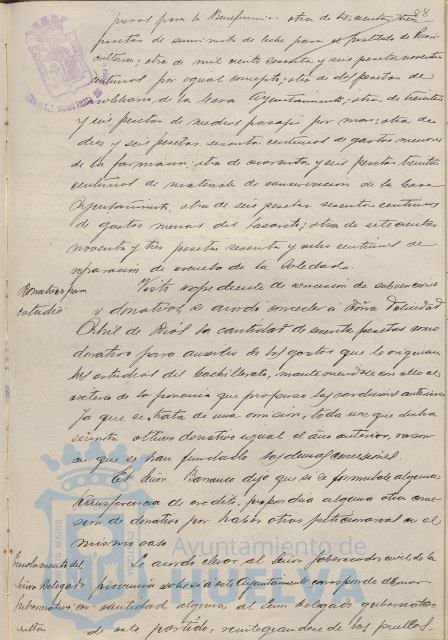 88
pesos para la Beneficencia; otra de trescientas tres
pesetas de suministro de leche para el Instituto de Puericultura
cultura, otra de mil ciento sesenta y seis pesetas noventa
céntimos por igual concepto; otra de diez pesetas de
mobiliario de la Casa Ayuntamiento; otra de treinta
y seis pesetas de medios pasajes por mar; otra de
diez y seis pesetas sesenta céntimos de gastos menores
de la farmacia; otra de cuarenta y seis pesetas treinta
céntimos de material de conservación de la Casa
Ayuntamiento, otra de seis pesetas sesenta céntimos
de gastos menores del Lazareto; otra de setecientas
noventa y tres pesetas sesenta y ocho céntimos de
reparación de escuela de la Soledad.
Donativo para
estudio
Visto expediente de concesión de subvenciones
y donativos, se acordó conceder a Doña Felicidad
de la cantidad de pesetas como
donativo para auxilio de los gastos que le originan
los estudios del bachillerato, manteniéndose con ello el
criterio de la ponencia que propuso las condiciones anteriores
ya que se trata de una omisión, toda vez que dicha
señorita obtuvo donativo igual el año anterior, razón
en que se han fundado las demás concesiones.
El Señor dijo que si se formulaba alguna
transferencia de crédito, propondría alguna otra conce-
sión de donativo por haber otros peticionarios en el
mismo caso.
Ayuntamiento de
HUELVA
Se acordó elevar al Señor Gobernador civil de la
Señor Delegado
provincia si este Ayuntamiento corresponde abonar
Gubernativo
cantidad alguna al Señor Delegado gubernativo
de este partido, de los pueblos